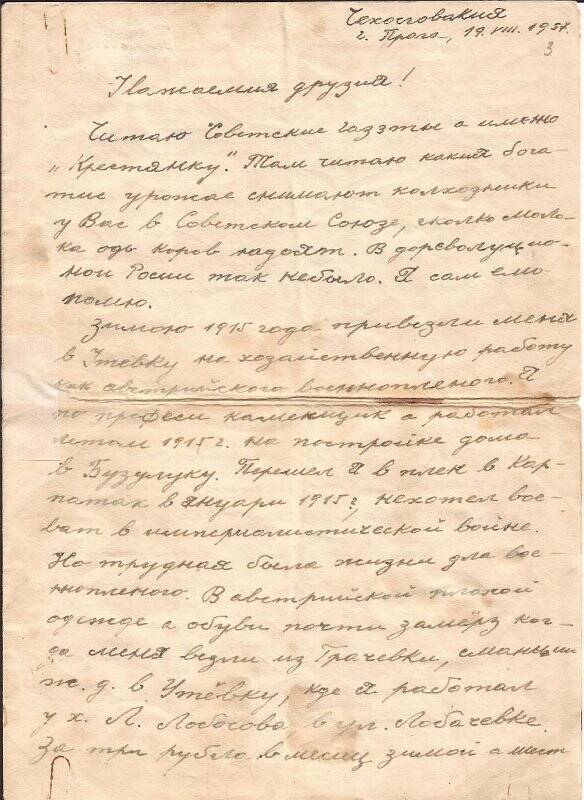 Чехословакия
г. Прага, 19. VIII. 1957.
3
Уважаемия друзия!
Читаю Советские газэты а имено
„Крестянку". Там читаю какия бога-
тие урожае снимают колхозники
у Вас в Советском Союзе, сколько моло-
ка одь коров надоят. В дореволуцио-
ной Росии так небыло. Я сам ето
помю.
Зимою 1915 года привезли меня
в Утевку на хозайственную работу
как австрийского военнопленого. Я
по професи каменщик а работал
летом 1915 г. на постройке дома
в Бузулуку. Перешел я в плен в Кар-
патах в януари 1915 г, нехотел вое-
ват в империалистической войне.
Но трудная была жизни для вое-
ннопленого. В австрийской плохой
одежде а обуви почти замёрз ког-
да меня везли из Грачевки, станции
ж. д. в Утёвку, где я работал
у х. Л. Лобосова, в ул. Лобачевке.
За три рубле в месиц зимой а шест